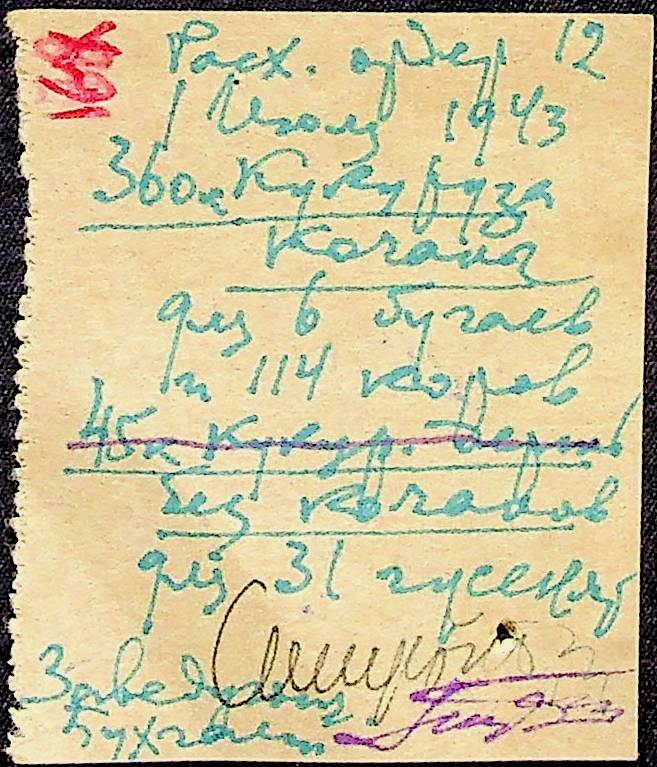 168
Расх. ордер 12
1 Июля 1943
360к Кукурудза
Качана
для 6 бугаев
и 114 коров
45к кукур. зерна
без качанов
для 31 гусенят
Заведующ
Бухгалт